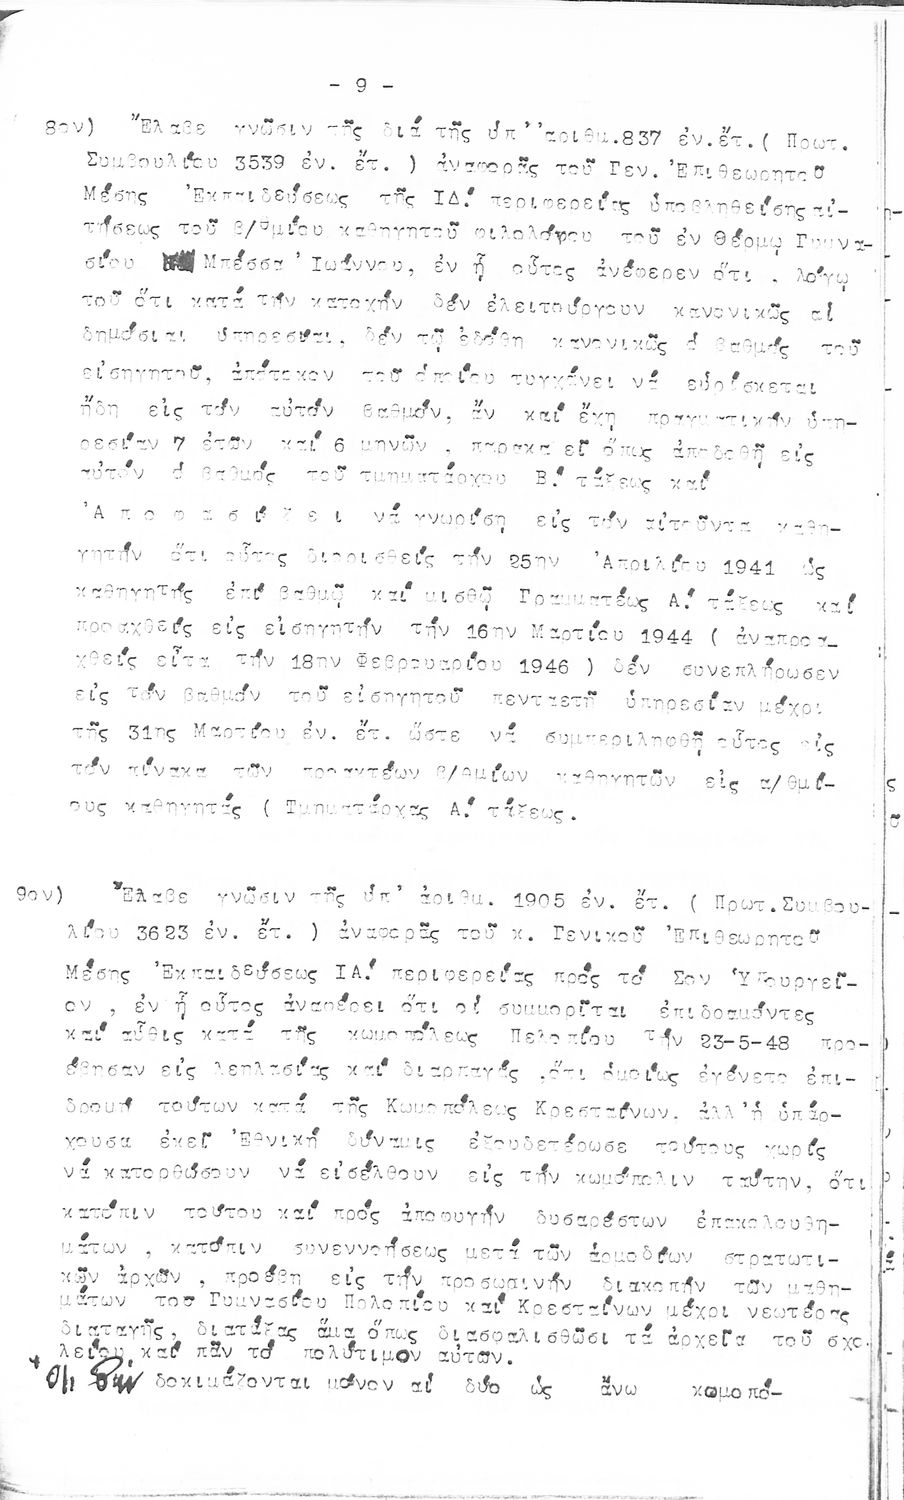 - 9 -
8ον) Ἔλαβε γνῶσιν τῆς διά τῆς ὑπ' ἀριθμ.837 ἐν.ἔτ.( Πρωτ.
Συμβουλίου 3539 ἐν. ἔτ. ) ἀναφορᾶς τοῦ Γεν. Ἐπιθεωρητοῦ
Μέσης Ἐκπαιδεύσεως τῆς ΙΔ! περιφερείας ὑποβληθείσης αἰ-
τήσεως τοῦ β/θμίου καθηγητοῦ φιλολόγου τοῦ ἐν Θέρμῳ Γυμνα-
σίου Μπέσσα Ἰωάννου, ἐν ᾗ οὗτος ἀνέφερεν ὅτι , λόγῳ
τοῦ ὅτι κατά τήν κατοχήν δέν ἐλειτούργουν κανονικῶς αἱ
δημόσιαι ὑπηρεσίαι, δέν τῷ ἐδόθη κανονικῶς ὁ βαθμός τοῦ
εἰσηγητοῦ, ἀπότοκον τοῦ ὁποίου τυγχάνει νά εὑρίσκεται
ἤδη εἰς τόν αὐτόν βαθμόν, ἄν καί ἔχῃ πραγματικήν ὑπη-
ρεσίαν 7 ἐτῶν καί 6 μηνῶν , παρακα εῖ ὅπως ἀποδοθῇ εἰς
αὐτόν ὁ βαθμός τοῦ τμηματάρχου Β! τάξεως καί
Ἀ π ο φ α σ ί ζ ε ι νά γνωρίσῃ εἰς τόν αἰτοῦντα καθη-
γητήν ὅτι οὗτος διορισθείς τήν 25ην Ἀπριλίου 1941 ὡς
καθηγητής ἐπί βαθμῷ καί μισθῷ Γραμματέως Α! τάξεως καί
προαχθείς εἰς εἰσηγητήν τήν 16ην Μαρτίου 1944 ( ἀναπροα-
χθείς εἶτα τήν 18ην Φεβρουαρίου 1946 ) δέν συνεπλήρωσεν
εἰς τόν βαθμόν τοῦ εἰσηγητοῦ πενταετῆ ὑπηρεσίαν μέχρι
τῆς 31ης Μαρτίου ἐν. ἔτ. ὥστε νά συμπεριληφθῇ οὗτος εἰς
τόν πίνακα τῶν προακτέων β/θμίων καθηγητῶν εἰς α/θμί-
ους καθηγητάς ( Τμηματάρχας Α! τάξεως.
9ον) Ἔλαβε γνῶσιν τῆς ὑπ' ἀριθμ. 1905 ἐν. ἔτ. ( Πρωτ.Συμβου-
λίου 3623 ἐν. ἔτ. ) ἀναφορᾶς τοῦ κ. Γενικοῦ Ἐπιθεωρητοῦ
Μέσης Ἐκπαιδεύσεως ΙΑ! περιφερείας πρός τό Σον Ὑπουργεῖ-
ον , ἐν ᾗ οὗτος ἀναφέρει ὅτι οἱ συμμορῖται ἐπιδραμόντες
καί αὖθις κατά τῆς κωμοπόλεως Πελοπίου τήν 23-5-48 προ-
έβησαν εἰς λεηλασίας καί διαρπαγάς ,ὅτι ὁμοίως ἐγένετο ἐπι-
δρομή τούτων κατά τῆς Κωμοπόλεως Κρεσταίνων, ἀλλ'ἡ ὑπάρ-
χουσα ἐκεῖ Ἐθνική δύναμις ἐξουδετέρωσε τούτους χωρίς
νά κατορθώσουν νά εἰσέλθουν εἰς τήν κωμόπολιν ταύτην, ὅτι
κατόπιν τούτου καί πρός ἀποφυγήν δυσαρέστων ἐπακολουθη-
μάτων , κατόπιν συνεννοήσεως μετά τῶν ἁρμοδίων στρατωτι-
κῶν ἀρχῶν , προέβη εἰς τήν προσωρινήν διακοπήν τῶν μαθη-
μάτων τοῦ Γυμνασίου Πολοπίου καί Κρεσταίνων μέχρι νεωτέρας
διαταγῆς, διατάξας ἅμα ὅπως διασφαλισθῶσι τά ἀρχεῖα τοῦ σχο-
λείου καί πᾶν τό πολύτιμον αὐτῶν.
δοκιμάζονται μόνον αἱ δύο ὡς ἄνω κωμοπό-